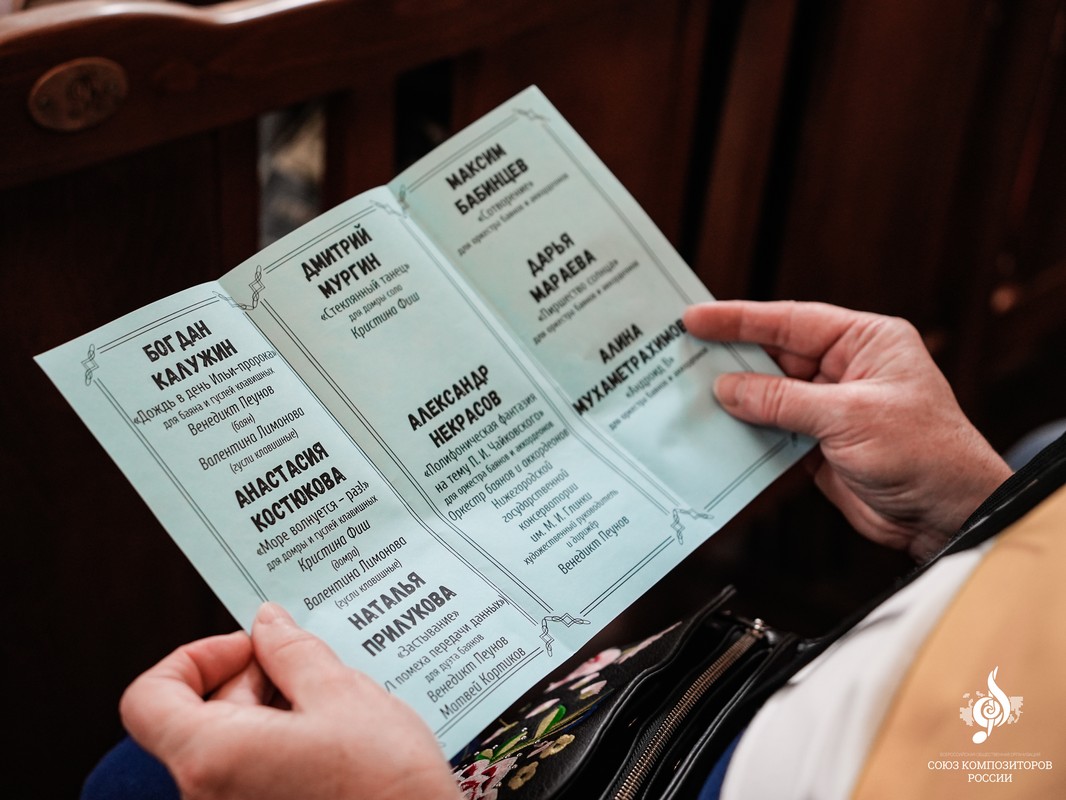 БОГДАН
КАЛУЖИН
«Дождь в день Ильи-пророка»
для баяна и гуслей клавишных
Венедикт Пеунов
(баян)
Валентина Лимонова
(гусли клавишные)
АНАСТАСИЯ
КОСТЮКОВА
«Море волнуется – раз!»
для домры и гуслей клавишных
Кристина Фиш
(домра)
Валентина Лимонова
(гусли клавишные)
НАТАЛЬЯ
ПРИЛУКОВА
«Застывание»
помеха передачи данных»
для дуэта баянов
Венедикт Пеунов
Матвей Кортиков
ДМИТРИЙ
МУРГИН
«Стеклянный танец»
для домры соло
Кристина Фиш
АЛЕКСАНДР
НЕКРАСОВ
«Полифоническая фантазия
на тему П. И. Чайковского»
для оркестра баянов и аккордеонов
Оркестр баянов и аккордеонов
Нижегородской
государственной
консерватории
им. М. И. Глинки
художественный руководитель
и дирижёр
Венедикт Пеунов
МАКСИМ
БАБИНЦЕВ
«Сотворение»
для оркестра баянов и аккордеонов
ДАРЬЯ
МАРАЕВА
«Пиршество солнца»
для оркестра баянов и аккордеонов
АЛИНА
МУХАМЕТРАХИМОВ
«Андроид
для оркестра баянов и аккордеонов
СОЮЗ КОМПОЗИТОРОВ
РОССИИ